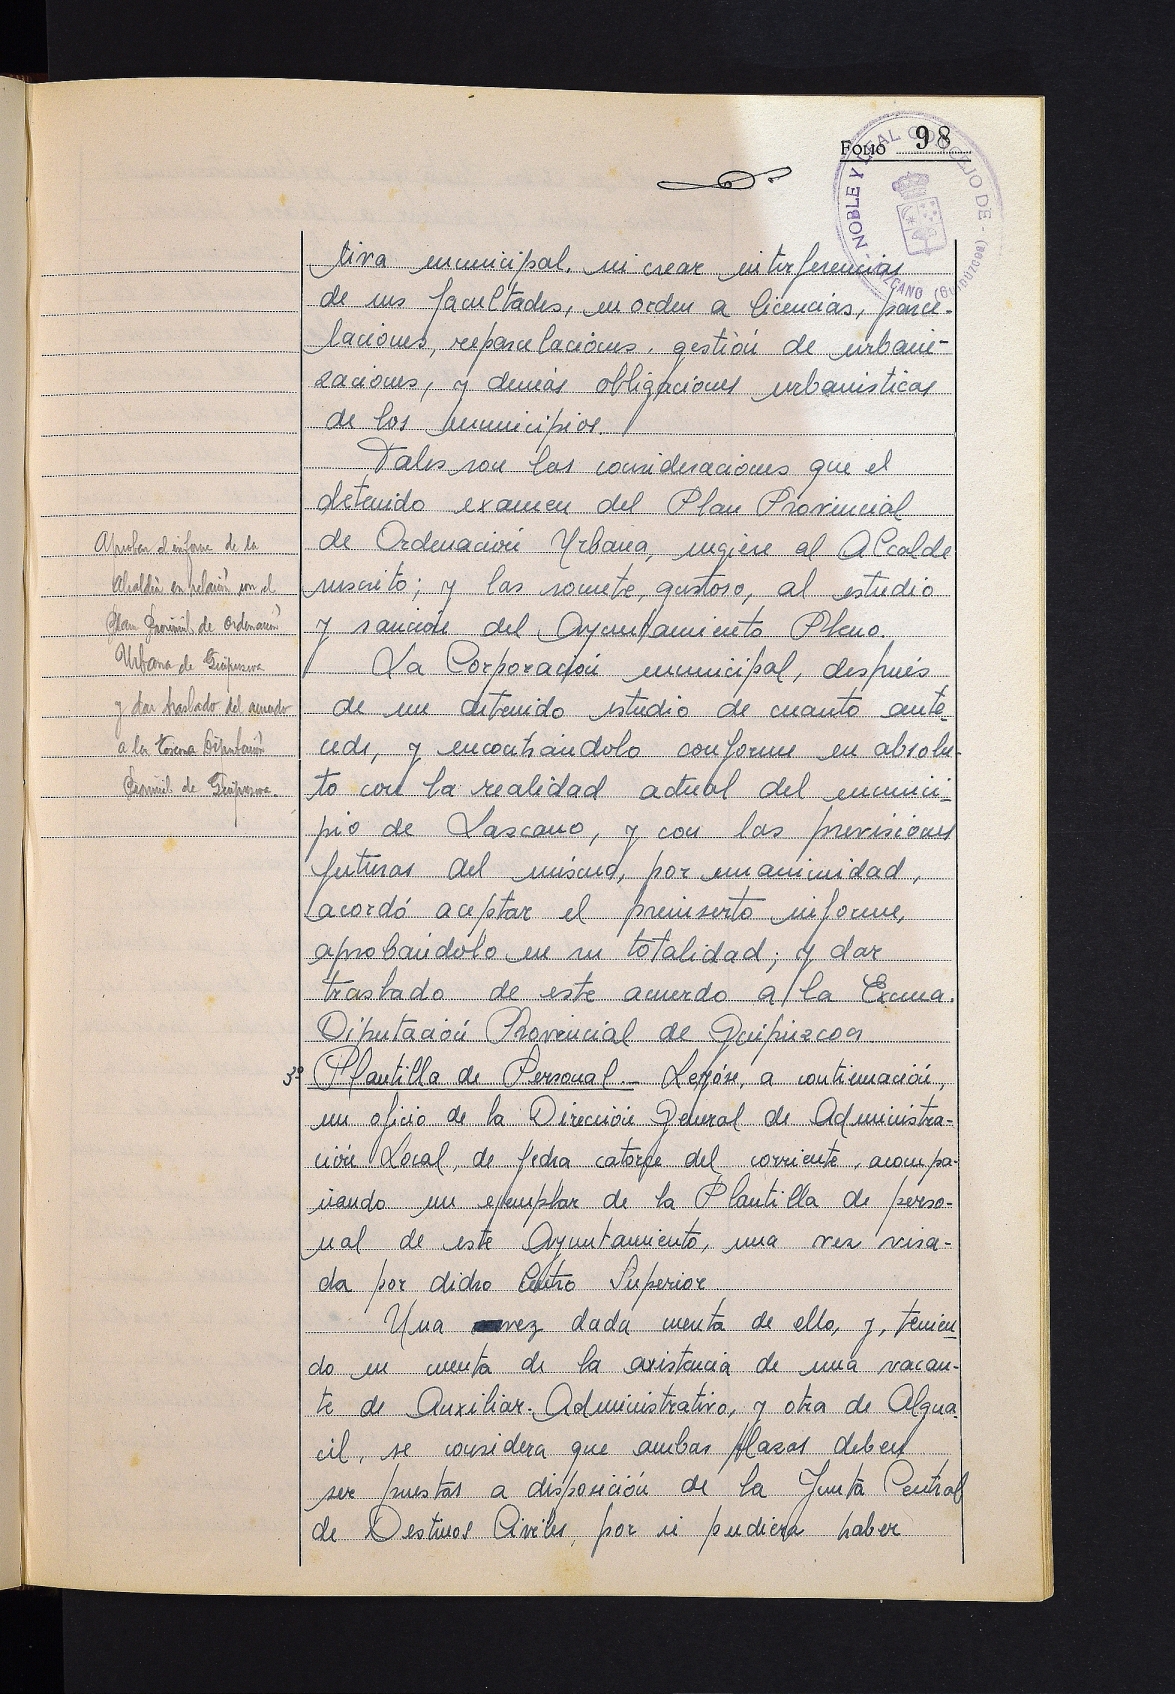 Folio 98
NOBLE Y LEAL CONCEJO DE - LAZCANO (GUIPUZCOA)
tiva municipal. ni crear interferencias
de sus facultades, en orden a licencias, parce-
laciones, reparcelaciones. gestión de urbani-
zaciones, y demás obligaciones urbanisticas
de los municipios.
Tales son las consideraciones que el
detenido examen del Plan Provincial
de Ordenación Urbana, sugiere al Alcalde
suscrito; y las somete, gustoso, al estudio
y sanción del Ayuntamiento Pleno.
La Corporación municipal, después
de un detenido estudio de cuanto ante-
cede, y encontrándolo conforme en absolu-
to con la realidad actual del munici-
pio de Lazcano, y con las previsiones
futuras del mismo, por unanimidad,
acordó aceptar el preinserto informe,
aprobándolo en su totalidad; y dar
traslado de este acuerdo a la Excma.
Diputación Provincial de Guipúzcoa
Aprobar el informe de la
Alcaldía en relación con el
Plan Provincial de Ordenación
Urbana de Guipúzcoa
y dar traslado del acuerdo
a la Excma Diputación
Provincial de Guipúzcoa.
3º Plantilla de Personal.- Leyóse, a continuación,
un oficio de la Dirección General de Administra-
ción Local, de fecha catorce del corriente, acompa-
ñando un ejemplar de la Plantilla de perso-
nal de este Ayuntamiento, una vez visa-
da por dicho Centro Superior
Una vez dada cuenta de ello, y, tenien-
do en cuenta de la existencia de una vacan-
te de Auxiliar-Administrativo, y otra de Algua-
cil, se considera que ambas plazas deben
ser puestas a disposición de la Junta Central
de Destinos Civiles, por si pudiera haber